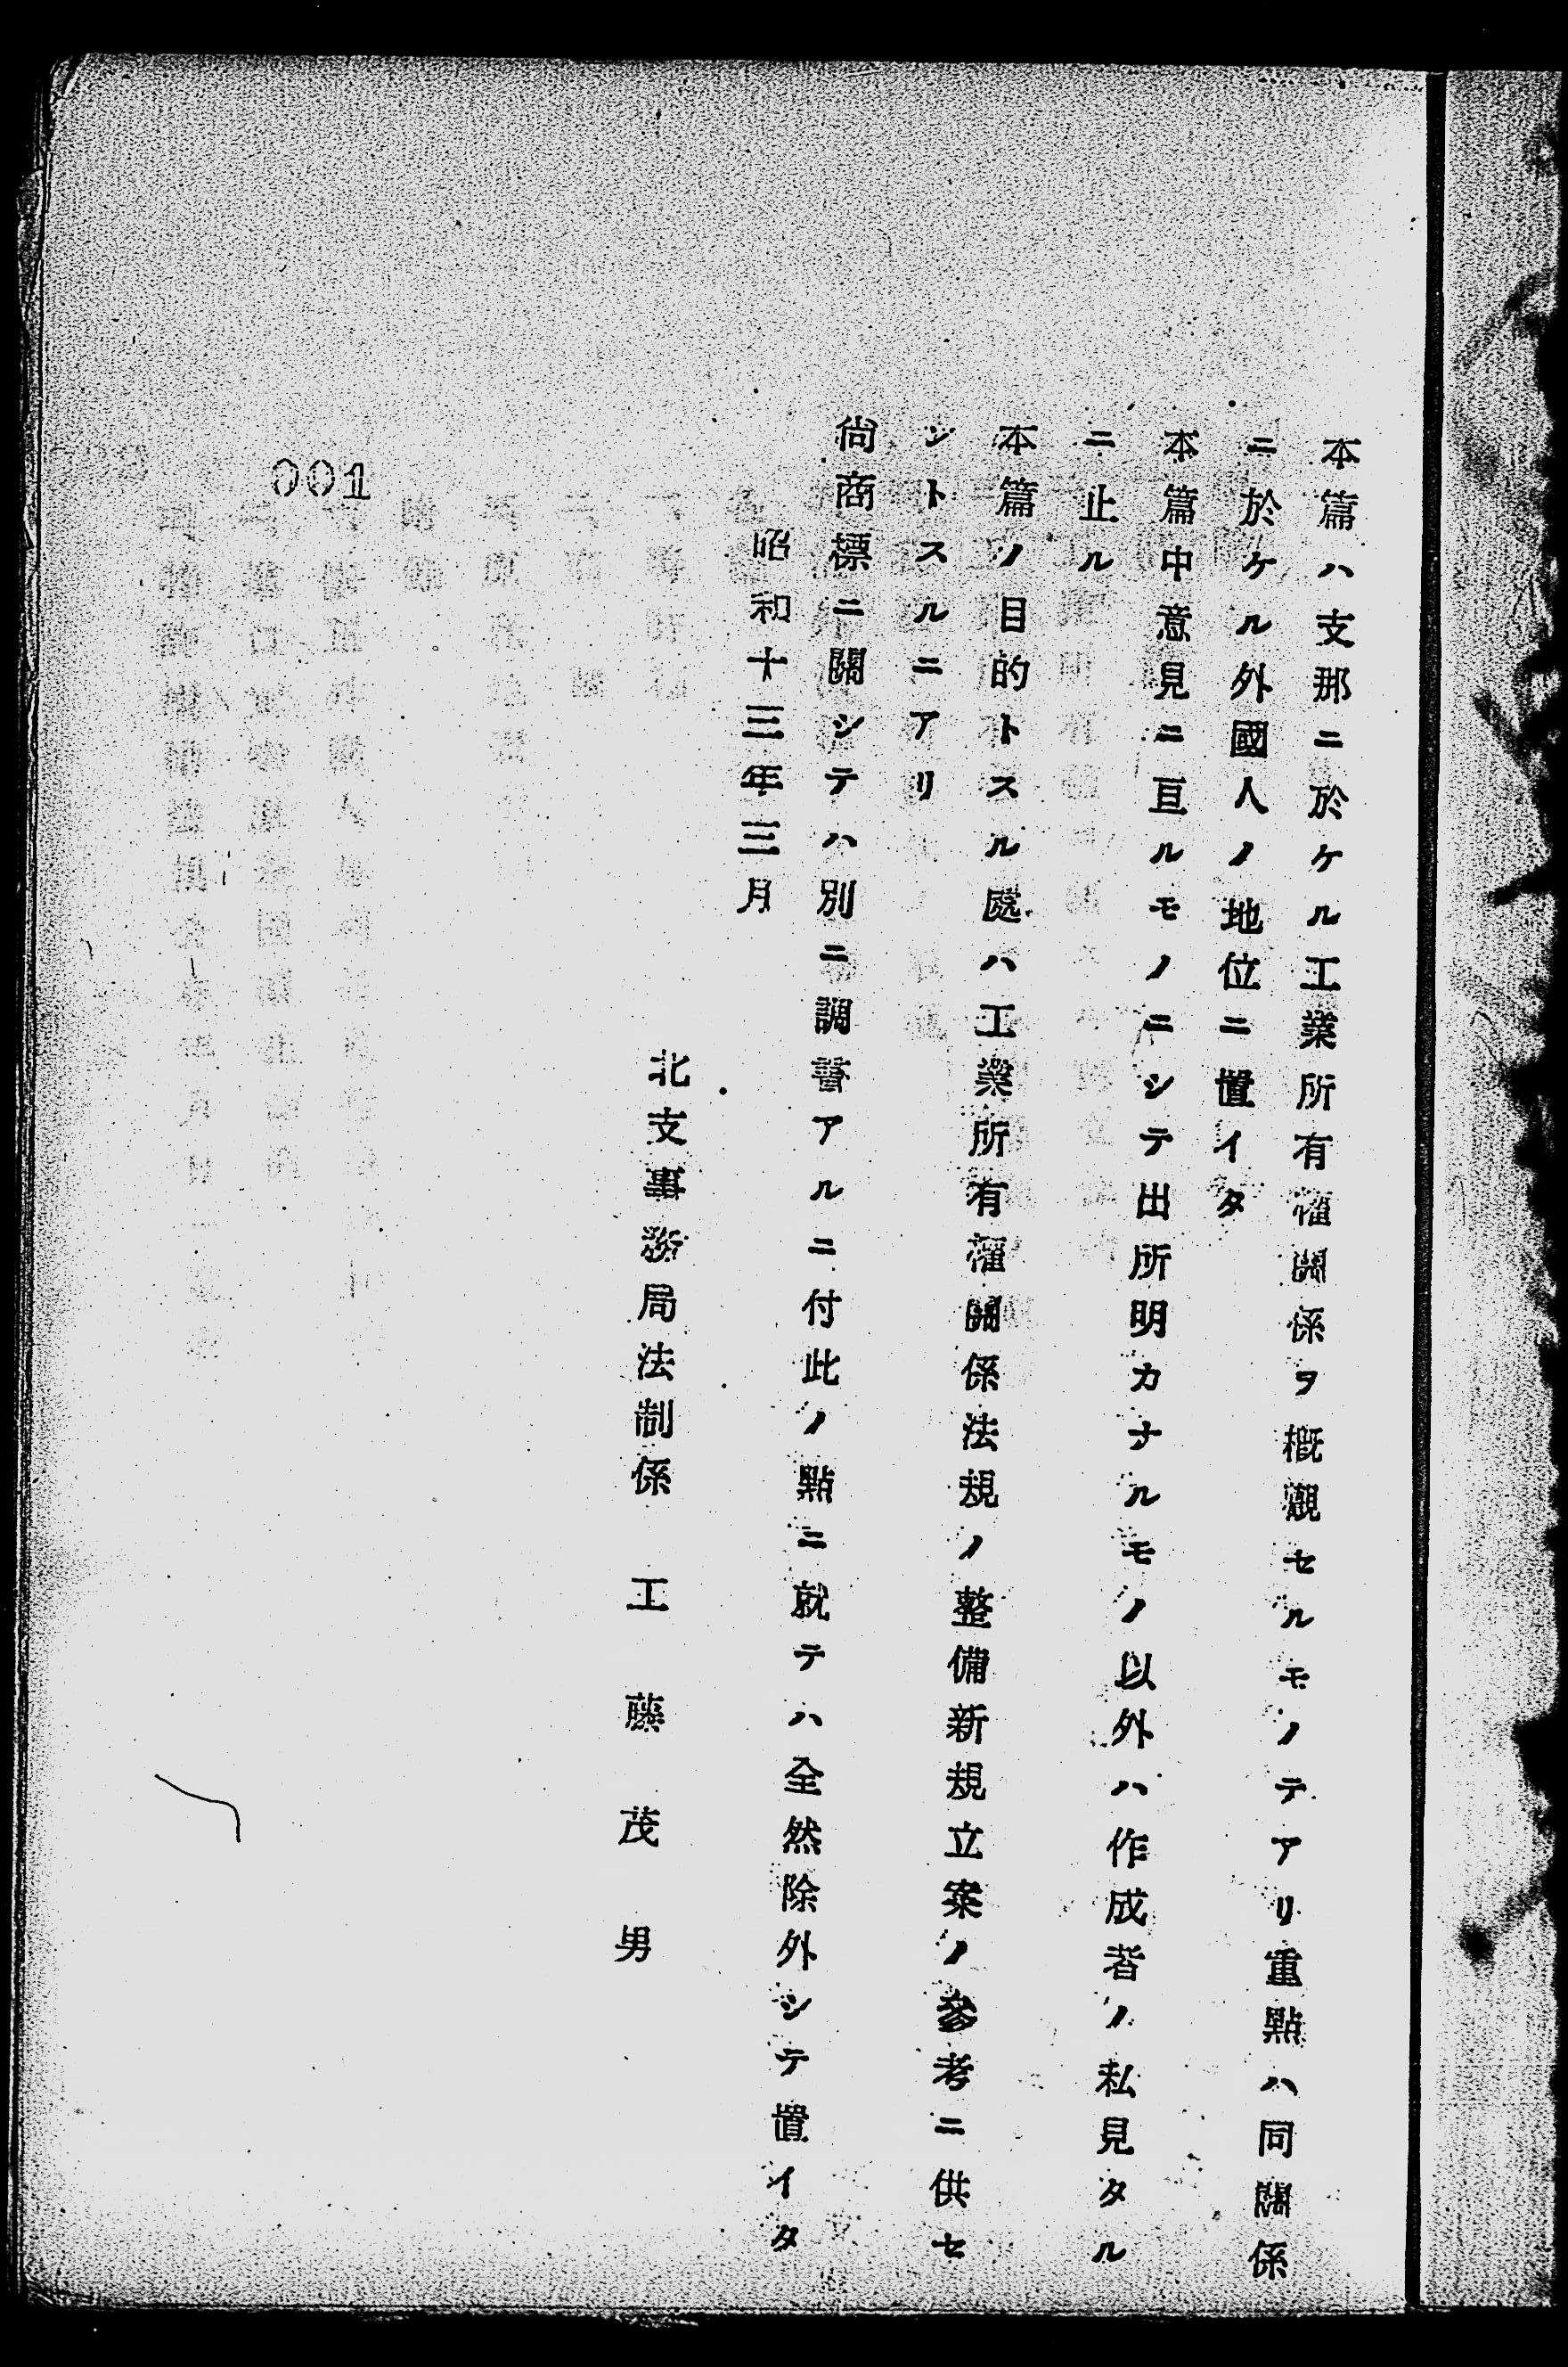 本篇ハ支那ニ於ケル工業所有權關係ヲ概觀セルモノテアリ重點ハ同關係
ニ於ケル外國人ノ地位ニ置イタ
本篇中意見ニ亘ルモノニシテ出所明カナルモノ以外ハ作成者ノ私見タル
ニ止ル
本篇ノ目的トスル處ハ工業所有權關係法規ノ整備新規立案ノ參考ニ供セ
ントスルニアリ
尙商標ニ關シテハ別ニ調書アルニ付此ノ點ニ就テハ全然除外シテ置イタ
昭和十三年三月
北支事務局法制係 工藤茂男
001